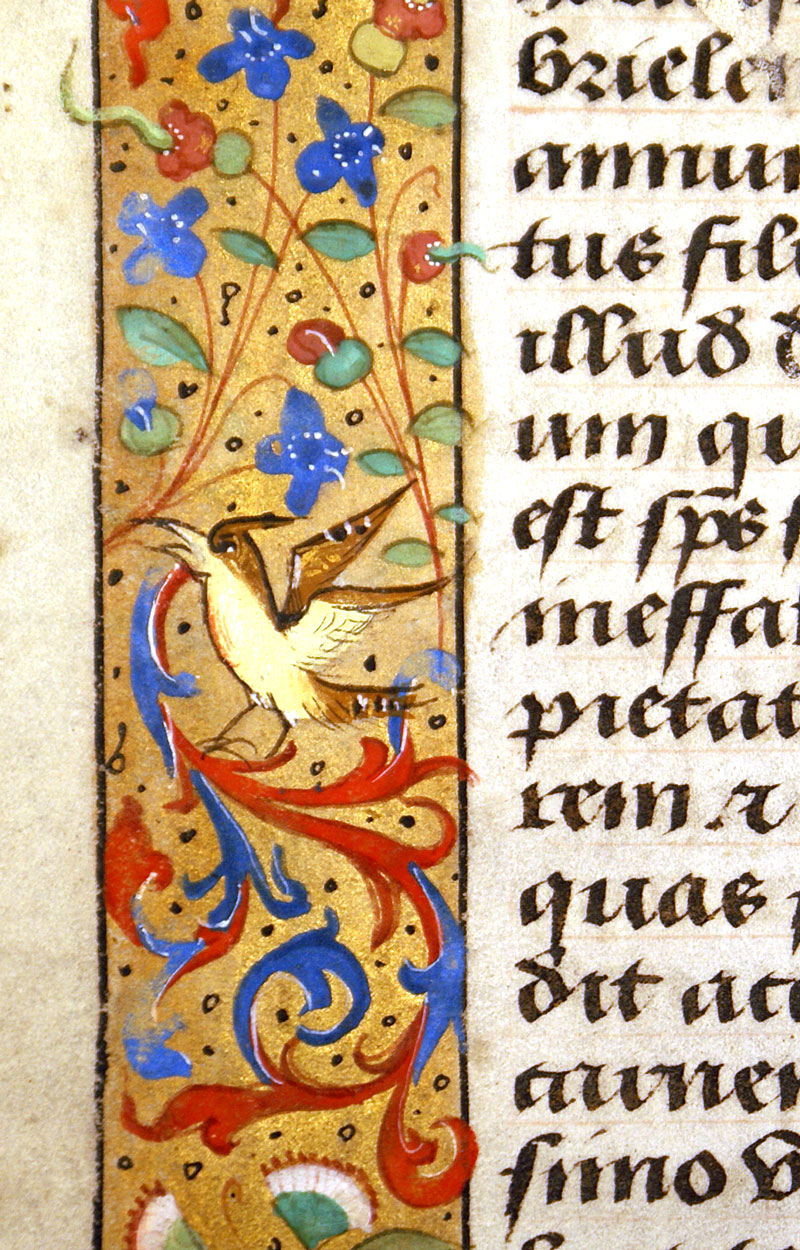 briele
annun
tus fili
illud d
um qu
est sp̄s s
ineffa
pietat
rem ⁊
quas p
dit acc
simo v